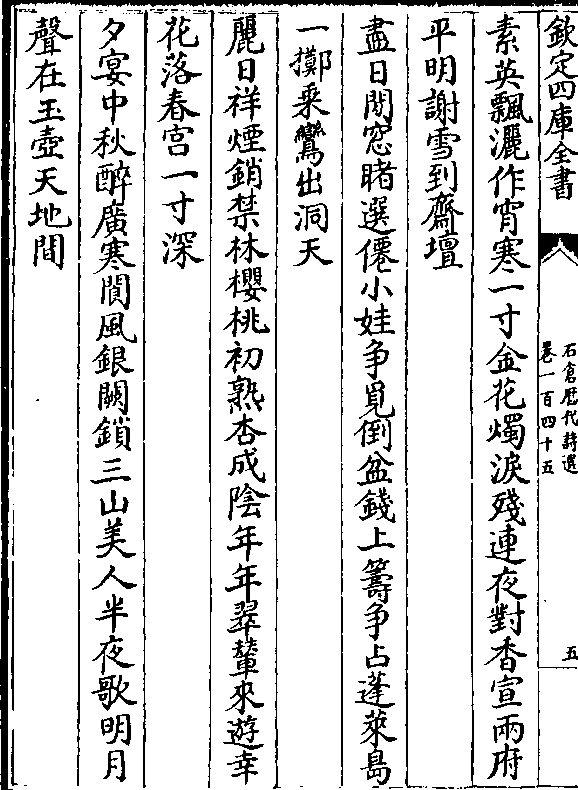 欽定四庫全書
石倉歴代詩選
卷一百四十五
五
素英飄灑作宵寒一寸金花燭淚殘連夜對香宣兩府
平明謝雪到齋壇
盡日閒窓賭選僊小娃争覓倒盆錢上籌争占蓬萊島
一擲乘鸞出洞天
麗日祥煙銷禁林櫻桃初熟杏成陰年年翠輦來遊幸
花落春宫一寸深
夕宴中秋醉廣寒閬風銀闕鎖三山美人半夜歌明月
聲在玉壺天地間